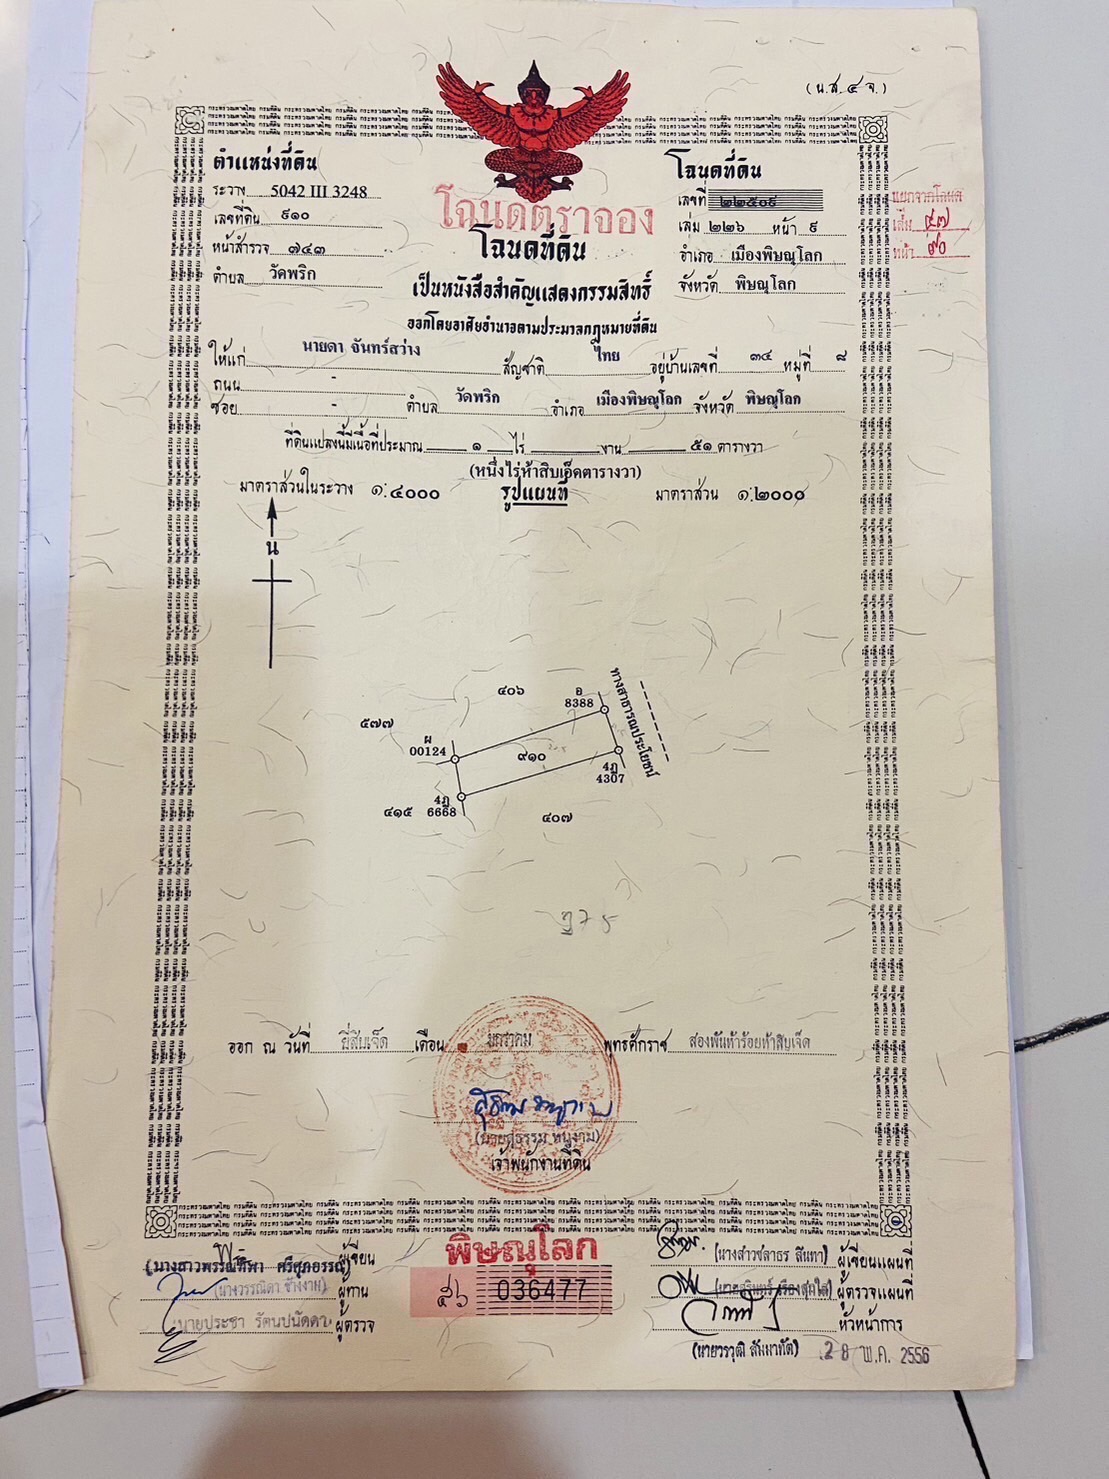 (น.ส.๔ จ.)
ตำแหน่งที่ดิน
ระวาง 5042 III 3248
เลขที่ดิน ๙๑๐
หน้าสำรวจ ๗๔๓
ตำบล วัดพริก
โฉนดตราจอง
โฉนดที่ดิน
เป็นหนังสือสำคัญแสดงกรรมสิทธิ์
ออกโดยอาศัยอำนาจตามประมวลกฎหมายที่ดิน
โฉนดที่ดิน
เลขที่ ๒๒๕๐๙
เล่ม ๒๒๖ หน้า ๙
อำเภอ เมืองพิษณุโลก
จังหวัด พิษณุโลก
เล่ม ๔๗
หน้า ๙๐
ให้แก่ นายดา จันทร์สว่าง สัญชาติ ไทย อยู่บ้านเลขที่ ๓๔ หมู่ที่ ๘
ถนน -
ซอย - ตำบล วัดพริก อำเภอ เมืองพิษณุโลก จังหวัด พิษณุโลก
ที่ดินแปลงนี้มีเนื้อที่ประมาณ ๑ ไร่ งาน ๕๑ ตารางวา
(หนึ่งไร่ห้าสิบเอ็ดตารางวา)
มาตราส่วนในระวาง ๑:๔๐๐๐ รูปแผนที่ มาตราส่วน ๑:๒๐๐๐
น
๔๐๖
อ
8388
ทางสาธารณประโยชน์
๕๗๗
ผ
00124
๙๑๐
4ฎ
4307
4ฎ
๔๑๕ 6668
๔๐๗
ออก ณ วันที่ ยี่สิบเจ็ด เดือน มกราคม พุทธศักราช สองพันห้าร้อยห้าสิบเจ็ด
(นายสุธรรม หนูงาม)
เจ้าพนักงานที่ดิน
พิษณุโลก
036477
ผู้เขียน
(นางวรรณิดา ช้างงาม) ผู้ทาน
ผู้ตรวจ
ผู้เขียนแผนที่
ผู้ตรวจแผนที่
หัวหน้าการ
28 พ.ค. 2556